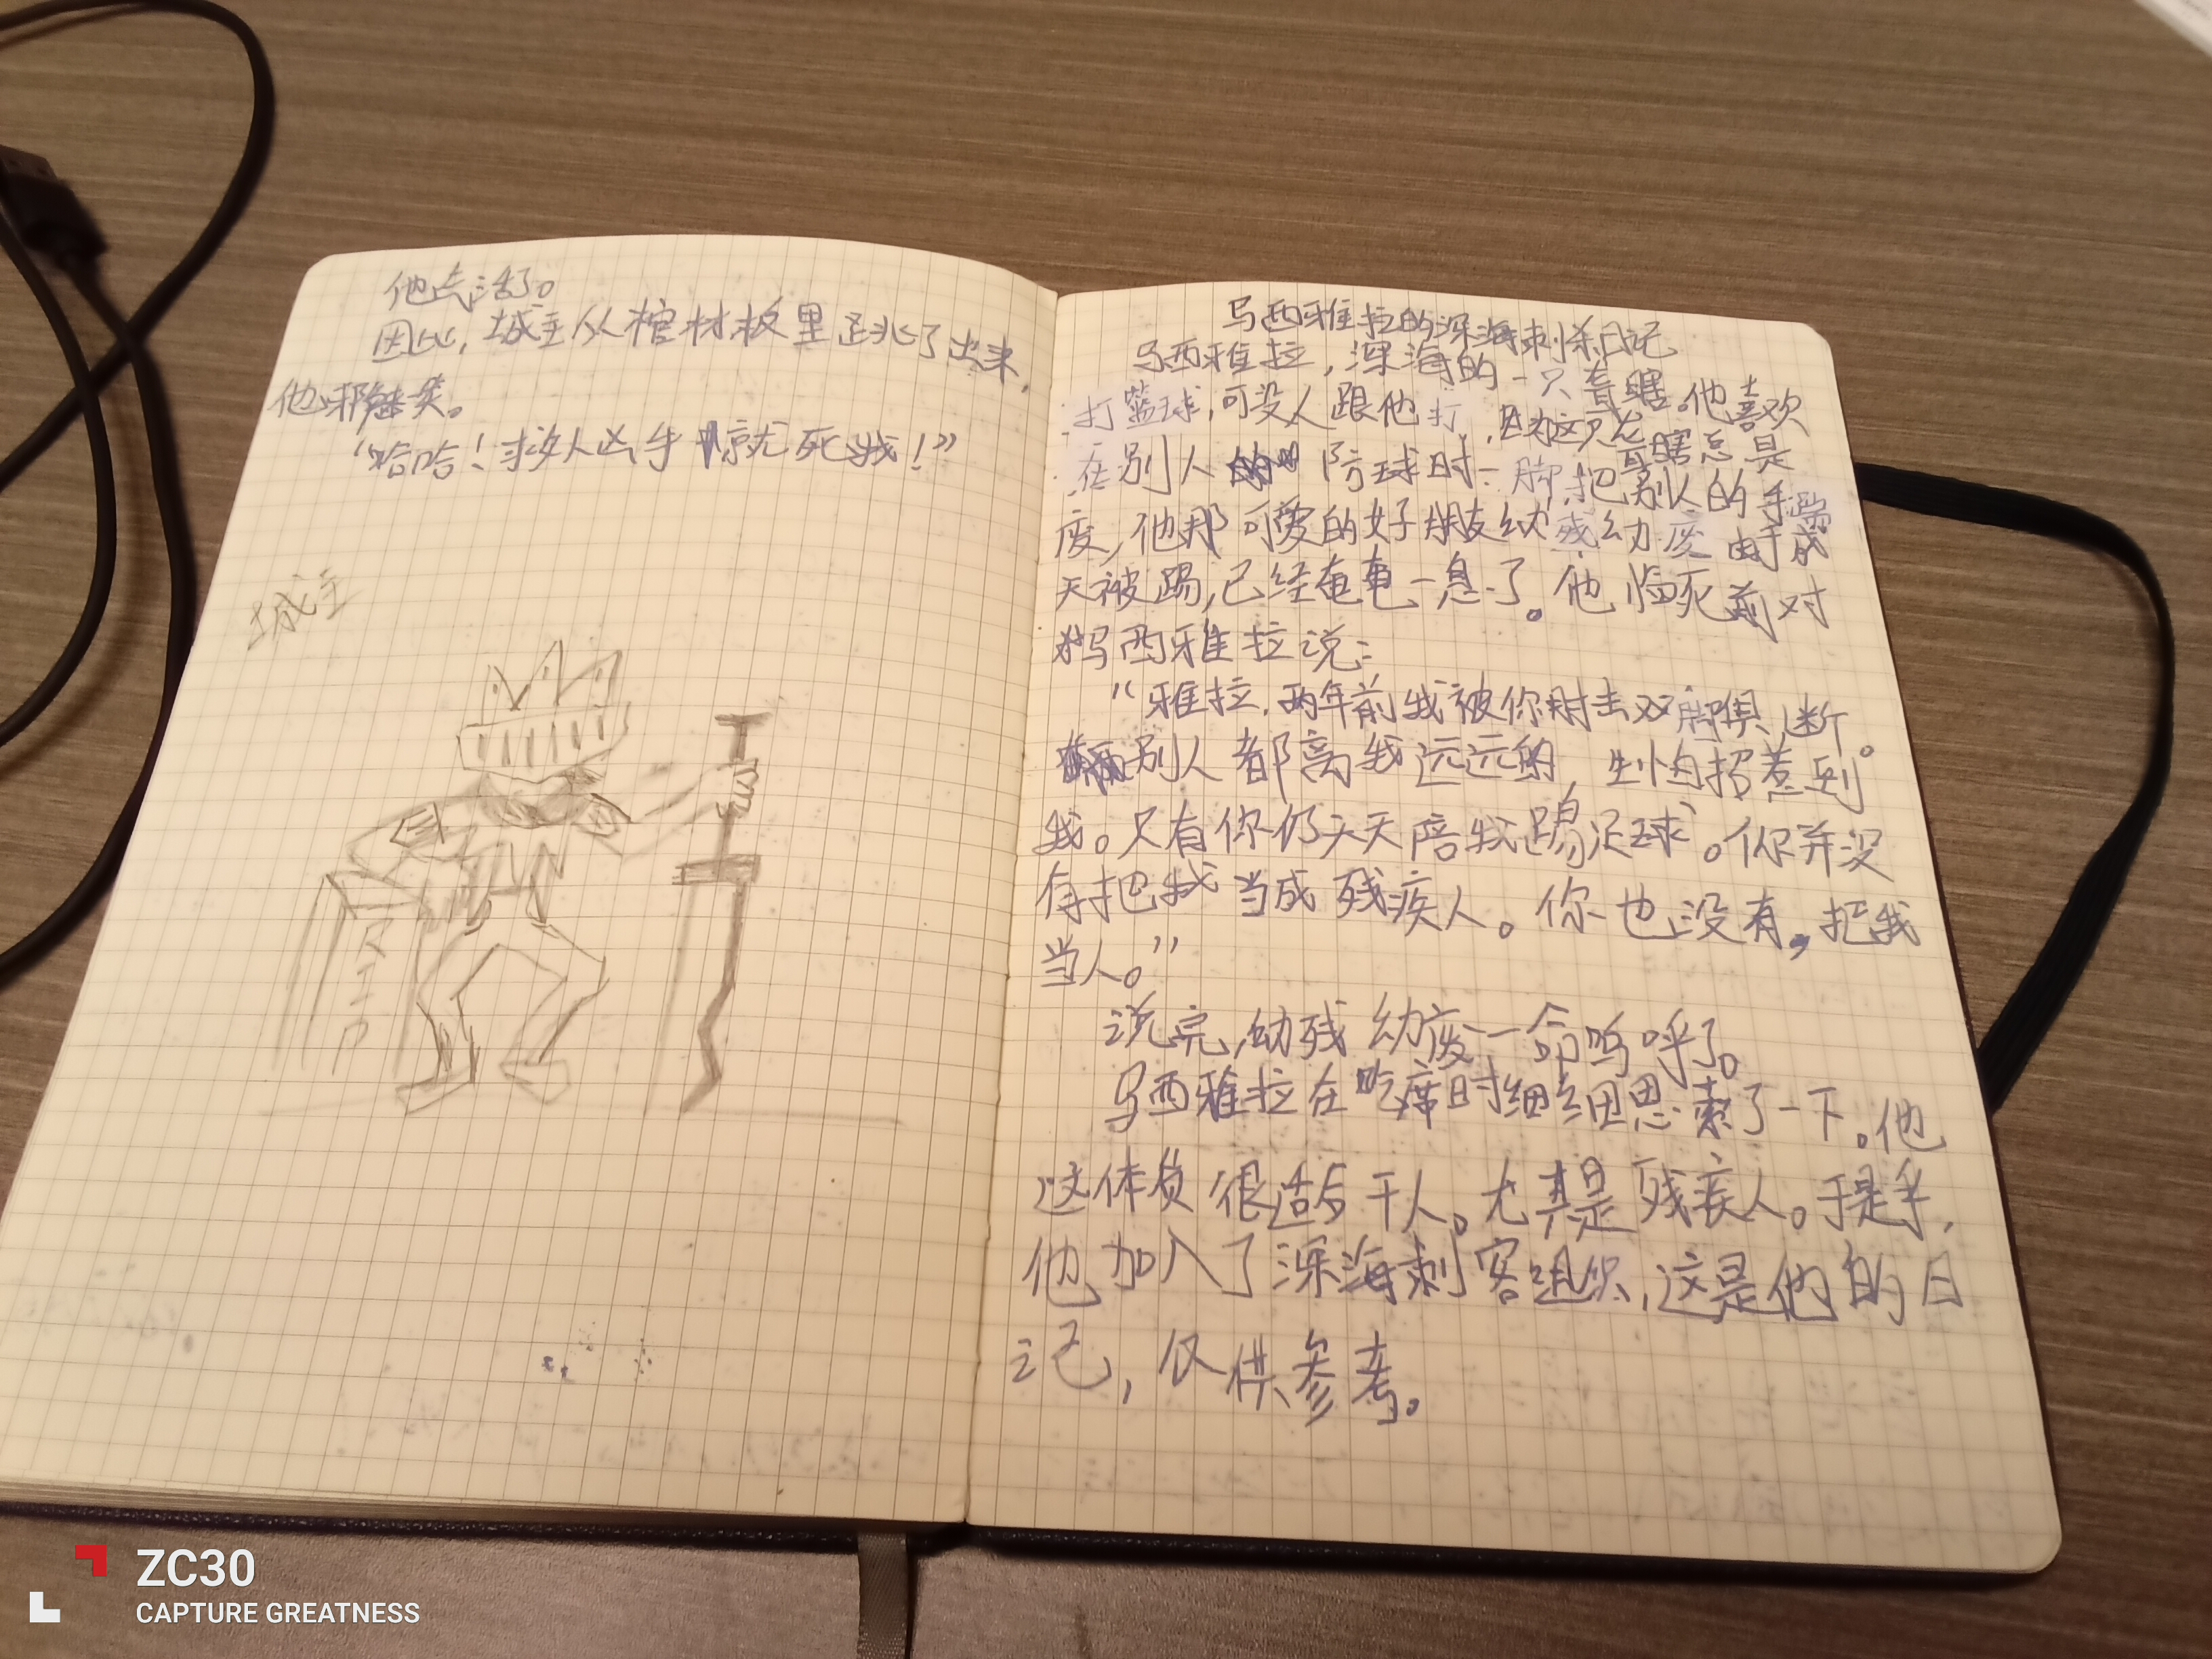 他点活了。
因此，城主从棺材板里跳了出来，
他邪魅笑。
“哈哈！救人凶手惊就死我！”
城主
马西雅拉的深海刺杀日记
马西雅拉，深海的一只聋瞎。他喜欢
打篮球，可没人跟他打，因为这只聋瞎总是
在别人的防球时一脚把别人的手踢
废，他那可爱的好朋友幼残幼废由于成
天被踢，已经奄奄一息了。他临死前对
马西雅拉说：
“雅拉，两年前我被你射击双脚俱断。
别人都离我远远的，生怕招惹到
我。只有你仍天天陪我踢足球。你并没
有把我当成残疾人。你也没有，把我
当人。”
说完，幼残幼废一命呜呼了。
马西雅拉在吃席时细细思索了一下。他
这体质很适合干人。尤其是残疾人。于是乎，
他加入了深海刺客组织，这是他的日
记，仅供参考。
ZC30
CAPTURE GREATNESS